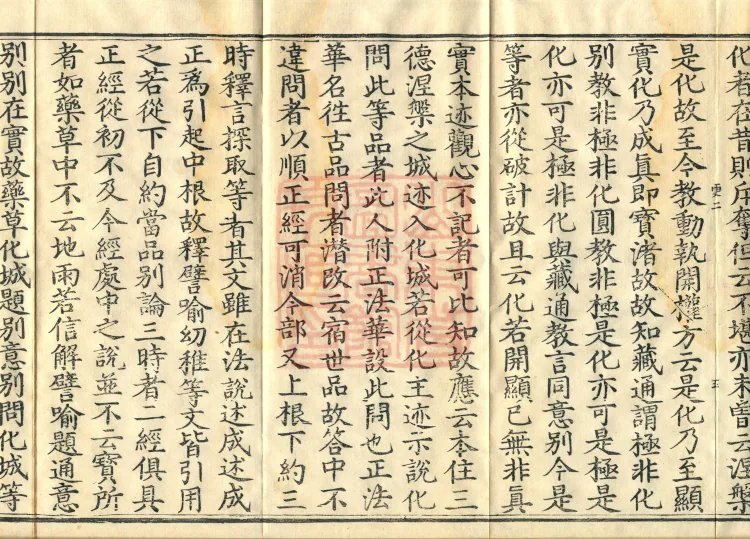 化者在昔則斥奪但云不堪亦未曾云涅槃
是化故至今教動執開權方云是化乃至顯
實化乃成真即寶渚故故知藏通謂極非化
別教非極非化圓教非極是化亦可是極是
化亦可是極非化與藏通教言同意別今是
等者亦從破計故且云化若開顯已無非真
實本迹觀心不記者可比知故應云本住三
德涅槃之城迹入化城若從化主迹示說化
問此等品者此人附正法華設此問也正法
華名往古品問者潛改云宿世品故答中不
違問者以順正經可消今部又上根下約三
時釋言探取等者其文雖在法說述成述成
正為引起中根故釋譬喻幼稚等文皆引用
之若從下自約當品別論三時者二經俱具
正經從初不及今經處中之說並不云寶所
者如藥草中不云地雨若信解譬喻題通意
別別在實故藥草化城題別意別問化城等